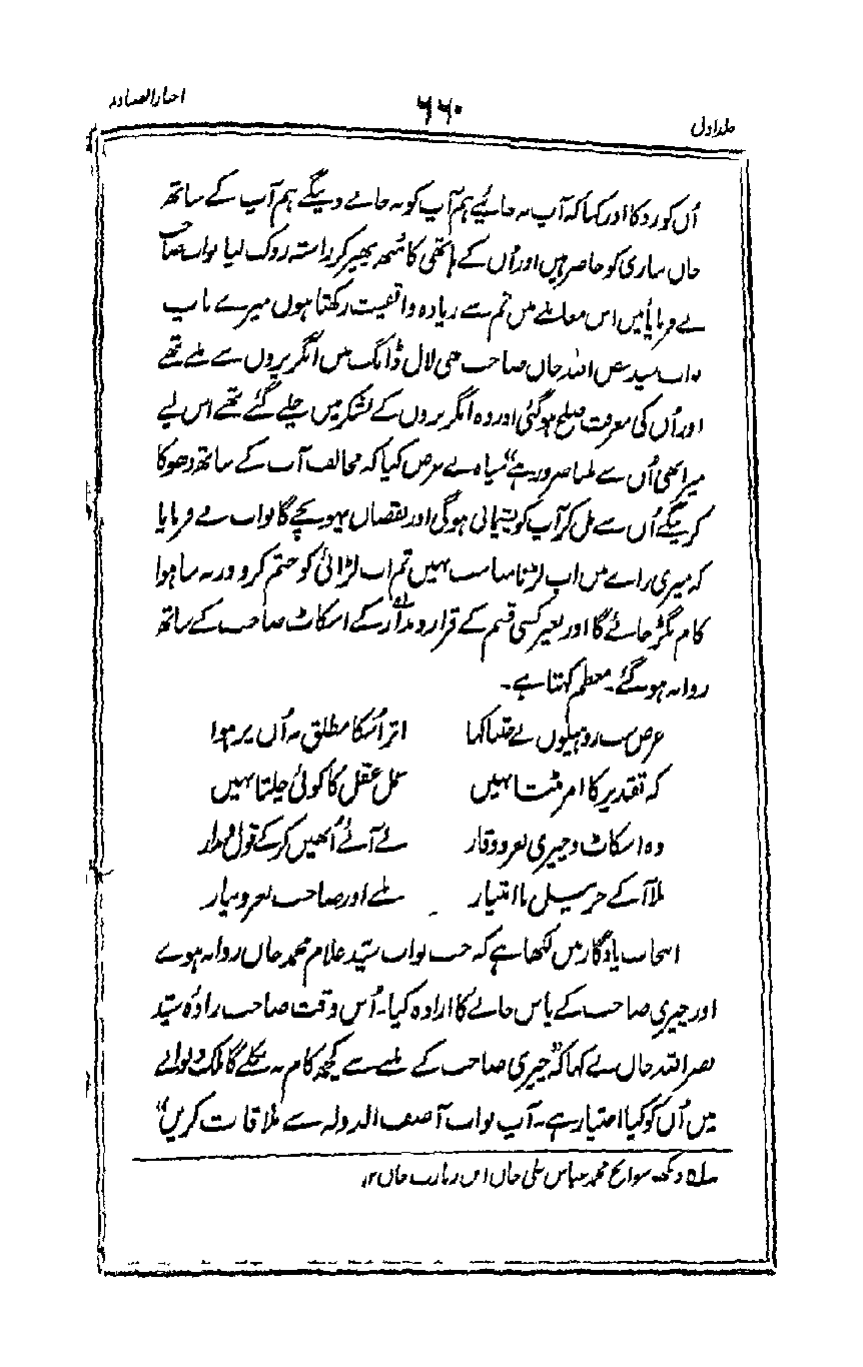 اخبارالصنادید
۶۶۰
جلداول
اُن کو روکا اور کہا کہ آپ نہ جائیے ہم آپ کو نہ جانے دینگے ہم آپ کے ساتھ
جاں نثاری کو حاضر ہیں اور اُن کے ہاتھی کا منھ پھیر کر راستہ روک لیا نواب صاحب
نے فرمایا میں اس معاملے میں تم سے زیادہ واقفیت رکھتا ہوں میرے باپ
نواب سید فیض اللہ خاں صاحب بھی لال ڈانگ میں انگریزوں سے ملے تھے
اور اُن کی معرفت صلح ہوگئی اور وہ انگریزوں کے لشکر میں چلے گئے تھے اس لیے
میرا بھی اُن سے ملنا ضرور ہے" سپاہ نے عرض کیا کہ مخالف آپ کے ساتھ دھوکا
کرینگے اُن سے مل کر آپ کو پشیمانی ہوگی اور نقصان پہونچے گا نواب نے فرمایا
کہ میری رائے میں اب لڑنا مناسب نہیں تم اب لڑائی کو ختم کرو ورنہ بنا ہوا
کام بگڑ جائے گا اور بغیر کسی قسم کے قرار و مدار کے اسکاٹ صاحب کے ساتھ
روانہ ہوگئے۔ معظم کہتا ہے۔
غرض سب روہیلوں نے جتنا کہا اثر اُسکا مطلق نہ اُن پر ہوا
کہ تقدیر کا امر مٹتا نہیں عمل عقل کا کوئی چلتا نہیں
وہ اسکاٹ و چیری وقار لے آئے اُنھیں کرکے قول و قرار
ملا آکے جرنیل با امتیاز ملے اور صاحب
انتخاب یادگار میں لکھا ہے کہ جب نواب سید غلام محمد خاں روانہ ہوے
اور چیری صاحب کے پاس جانے کا ارادہ کیا۔ اُس وقت صاحب زادہ سید
نصراللہ خاں نے کہا کہ "چیری صاحب کے ملنے سے کچھ کام نہ نکلے گا ملک دلوانے
میں اُن کو کیا اختیار ہے۔ آپ نواب آصف الدولہ سے ملاقات کریں"
۱ دیکھو سوانح محمد عباس علی خاں ابن خاں ۱۲